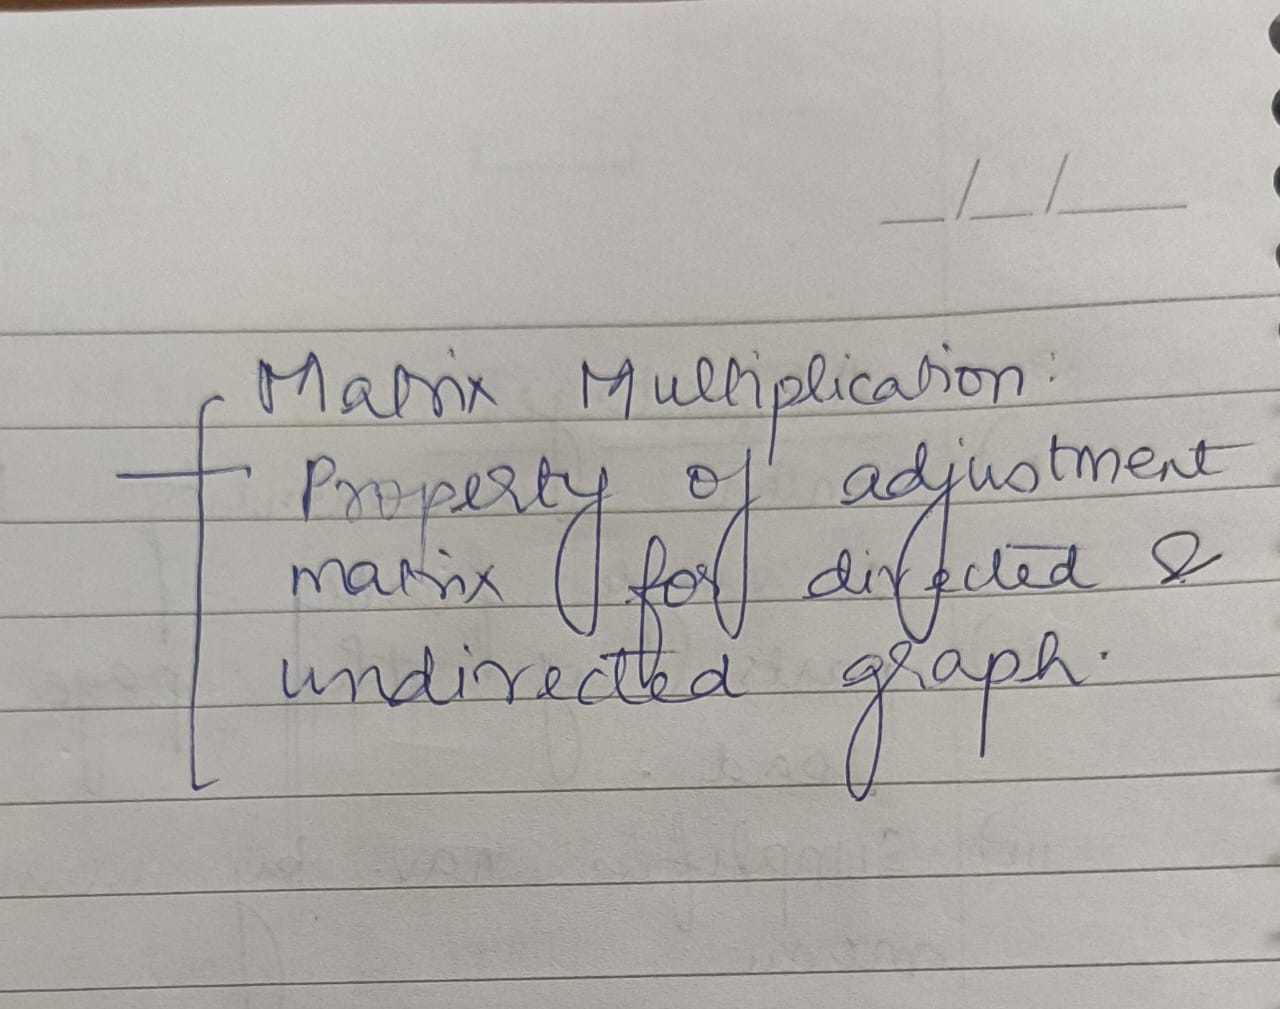 _/_/_
Matrix Multiplication:
Property of adjustment
matrix for directed &
undirected graph.